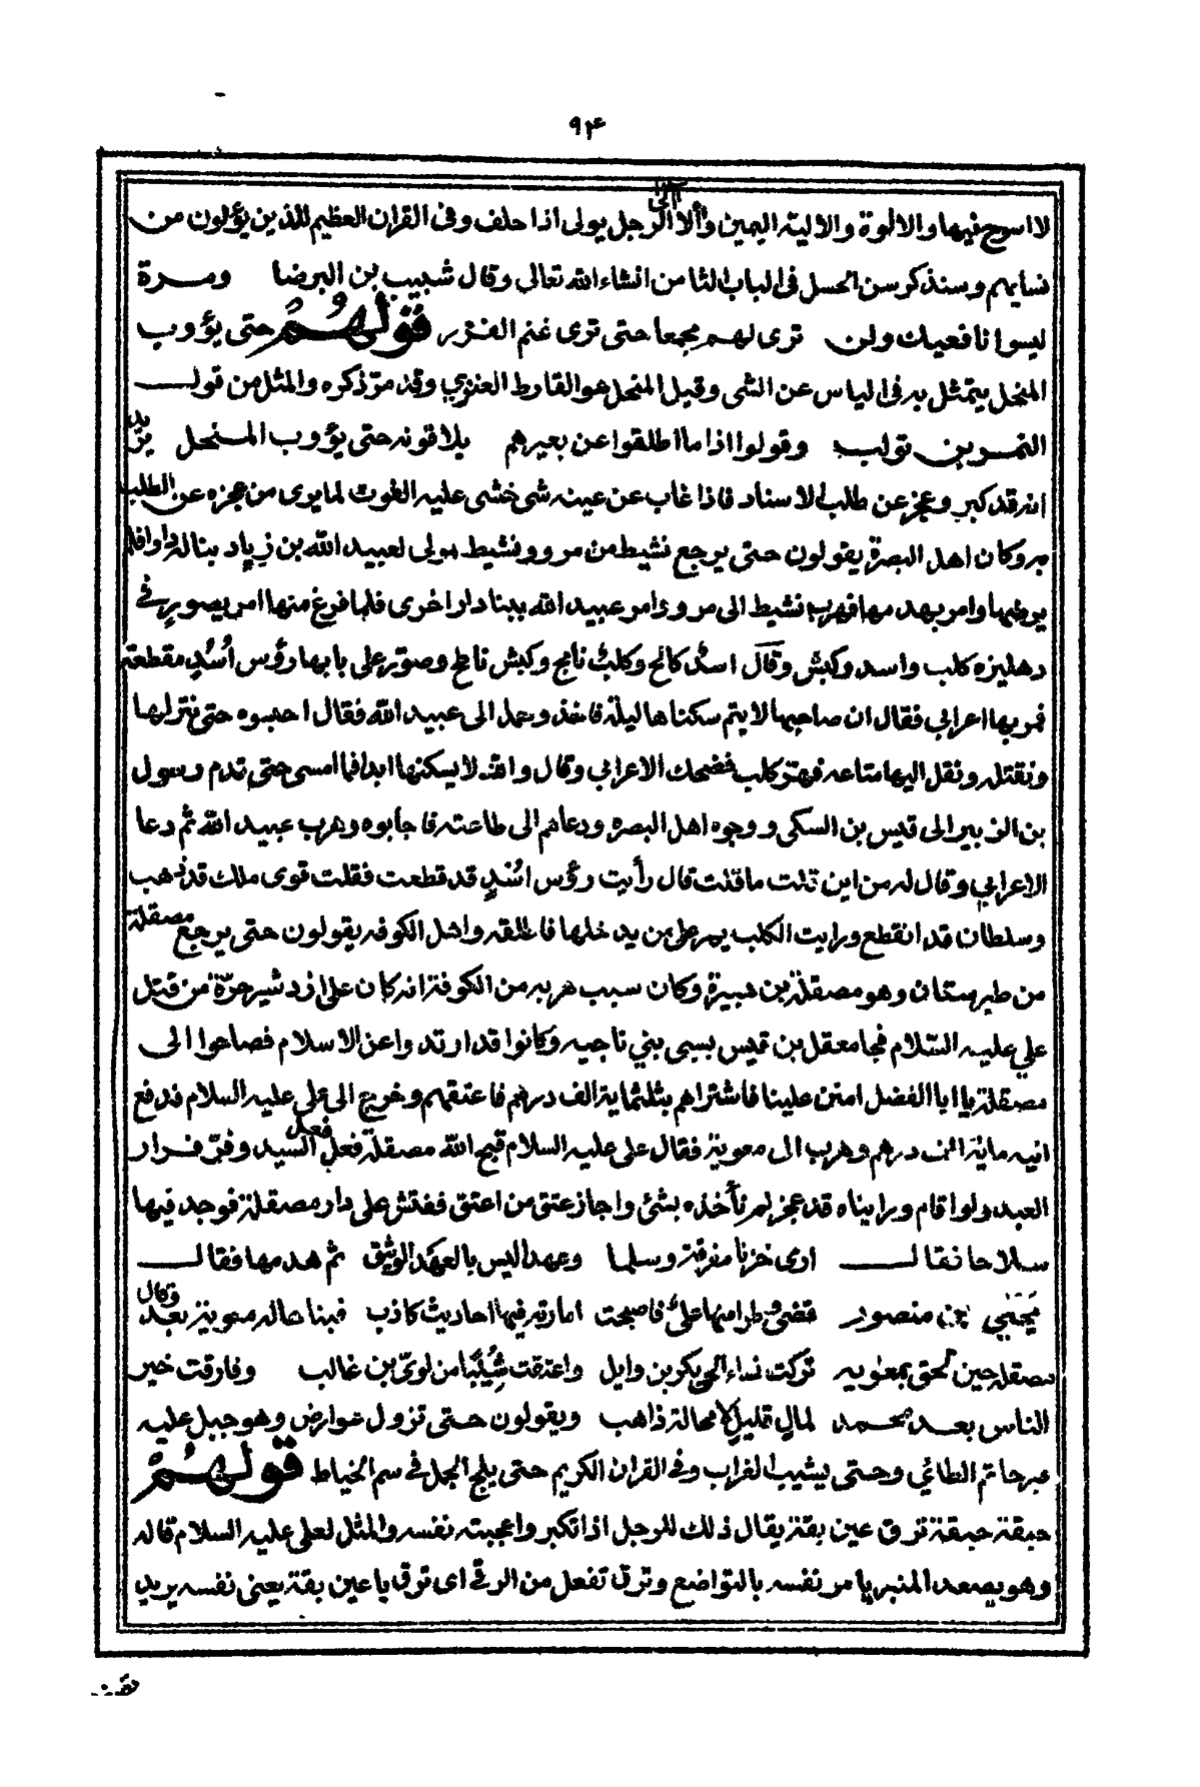 ٩٤
لا اسوح فيها والالوة والالية اليمين وألا الرجل يولى اذا حلف وفى القران العظيم للذين يؤلون من
نسايهم وسنذكر سن الحسل فى الباب الثامن انشاء الله تعالى وقال شبيب بن البرضا ومرة
ليسوا نافعيك ولن ترى لهم مجمعا حتى ترى غنم الفزر قولهم حتى يؤوب
المنخل يتمثل به فى الياس عن الشى وقيل المنخل هو القارظ العنزي وقد مرّ ذكره والمثل من قول
النمر بن تولب وقولوا اذا ما اطلقوا عن بعيرهم يلاقونه حتى يؤوب المنخل يريد
انه قد كبر وعجز عن طلب الاسناد فاذا غاب عن عينه شى خشى عليه الفوت لما يرى من عجزه عن الطلب
به وكان اهل البصرة يقولون حتى يرجع نشيط من مرو ونشيط مولى لعبيد الله بن زياد بنا له دارا فلم
يرضها وامر بهدمها فهرب نشيط الى مرو وامر عبيد الله ببنا دار اخرى فلما فرغ منها امر بصور فى
دهليزه كلب واسد وكبش وقال اسدٌ كالح وكلبٌ نابح وكبش ناطح وصوّر على بابها رؤس اُسُدٍ مقطعة
فمر بها اعرابي فقال ان صاحبها لا يتم سكناها ليلة فاخذ وحمل الى عبيد الله فقال احبسوه حتى ننزلها
ونقتله ونقل اليها متاعه فهتر كلب فضحك الاعرابي وقال والله لا يسكنها ابدا فما امسى حتى قدم رسول
بن الزبير الى قيس بن السكى ووجوه اهل البصره ودعاهم الى طاعته فاجابوه وهرب عبيد الله ثم دعا
الاعرابي وقال له من اين قلت ما قلت قال رأيت رؤس اسُدٍ قد قطعت فقلت قوى ملك قد ذهب
وسلطان قد انقطع ورايت الكلب يهر على من يدخلها فاطلقه واهل الكوفه يقولون حتى يرجع مصقلة
من طبرستان وهو مصقلة بن هبيرة وكان سبب هربه من الكوفة انه كان على اردشير خرّة من قبل
علي عليه السّلام فجا معقل بن قيس بسبى بني ناجيه وكانوا قد ارتدوا عن الاسلام فصاحوا الى
مصقلة يا ابا الفضل امنن علينا فاشتراهم بثلثماية الف درهم فاعتقهم وخرج الى على عليه السلام فدفع
اليه ماية الف درهم وهرب الى معوية فقال على عليه السلام قبح الله مصقلة فعل فعل السيد وفرّ فرار
العبد ولو اقام وراينا قد عجز لم نأخذه بشئ واجاز عتق من اعتق ففتش على دار مصقلة فوجد فيها
سلاحا فقال ارى خربا مفرقة وسلما وعهدا ليس بالعهد الوثيق ثم هدمها فقال
يحيى بن منصور قضى وطرا منها علىٌّ فاصبحت امارته فيها احاديث كاذب فبنا هاله معوية بعد وقال
مصقله حين لحق بمعويه تركت نساء الحي بكر بن وايل واعتقت سُبيًا من لوىّ بن غالب وفارقت خير
الناس بعد محمد لمالٍ قليلٍ لا محالة ذاهب ويقولون حتى تزول عوارض وهو جبل عليه
قبر حاتم الطائي وحتى يشيب الغراب وفى القران الكريم حتى يلج الجمل فى سم الخياط قولهم
حبقة حبقة ترق عين بقة يقال ذلك للرجل اذا تكبر واعجبته نفسه والمثل لعلى عليه السلام قاله
وهو يصعد المنبر يامر نفسه بالتواضع وترق تفعل من الرقى اى ترق يا عين بقة يعنى نفسه يريد